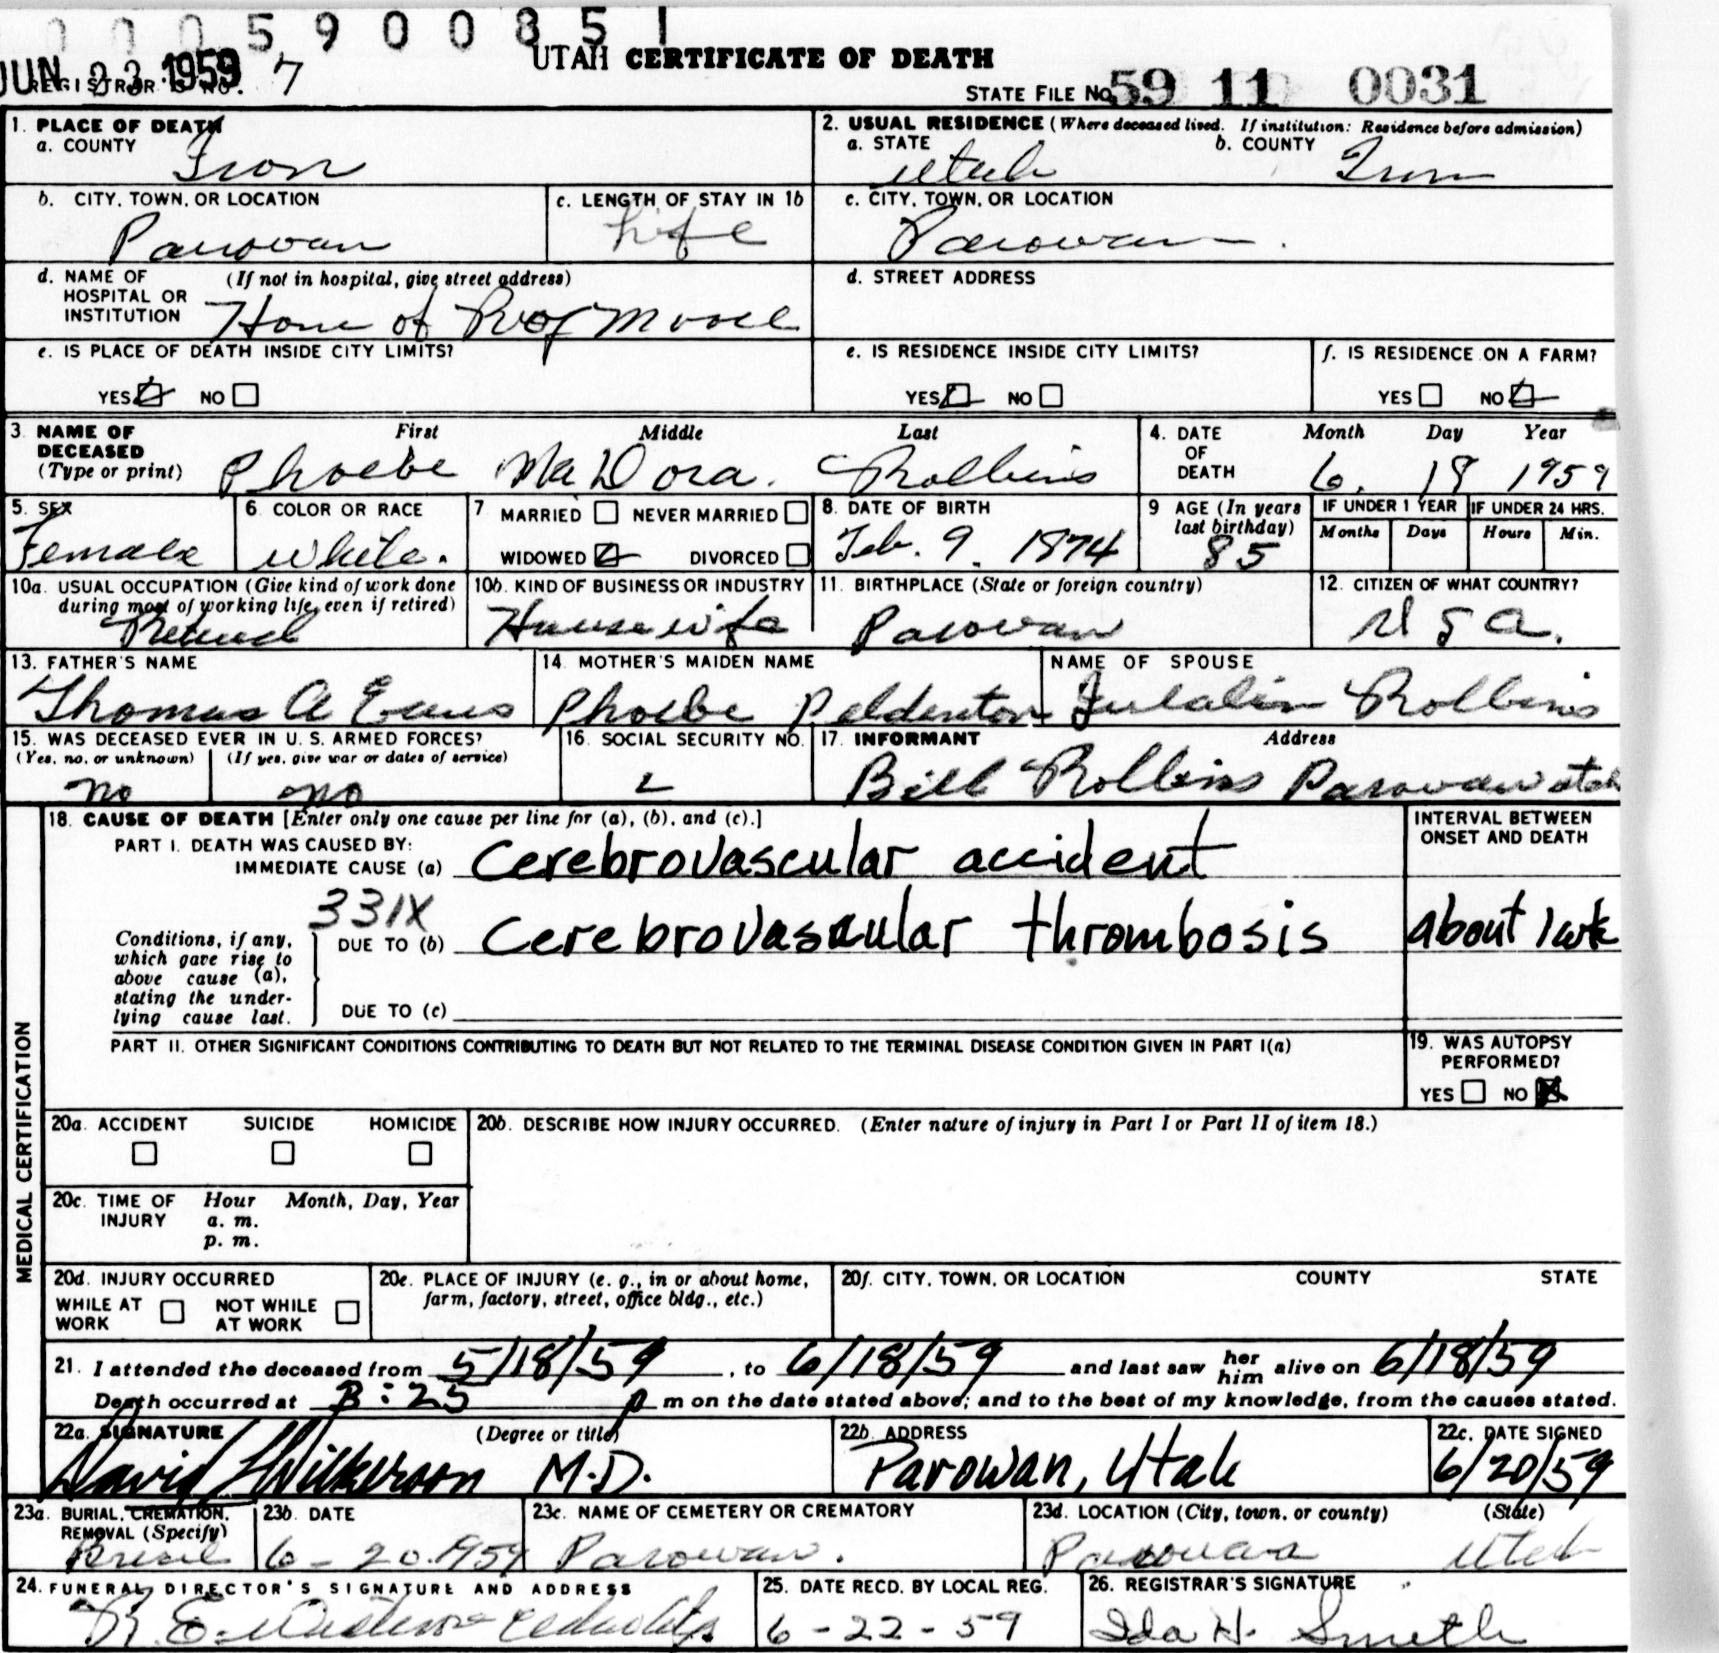 0005900851
UTAH CERTIFICATE OF DEATH
JUN 23 1959
REGISTRAR'S NO. 7
STATE FILE NO. 59 11 0031
1. PLACE OF DEATH
a. COUNTY Iron
2. USUAL RESIDENCE (Where deceased lived. If institution: Residence before admission)
a. STATE Utah b. COUNTY Iron
b. CITY, TOWN, OR LOCATION Parowan
c. LENGTH OF STAY IN 1b life
c. CITY, TOWN, OR LOCATION Parowan.
d. NAME OF HOSPITAL OR INSTITUTION (If not in hospital, give street address)
Home of Moore
d. STREET ADDRESS
e. IS PLACE OF DEATH INSIDE CITY LIMITS?
YES NO
e. IS RESIDENCE INSIDE CITY LIMITS?
YES NO
f. IS RESIDENCE ON A FARM?
YES NO
3. NAME OF DECEASED (Type or print)
First Middle Last
Phoebe MaDora. Rollins
4. DATE OF DEATH Month Day Year
6. 18 1959
5. SEX Female
6. COLOR OR RACE White.
7 MARRIED NEVER MARRIED
WIDOWED DIVORCED
8. DATE OF BIRTH Feb. 9. 1874
9 AGE (In years last birthday) 85
IF UNDER 1 YEAR Months Days
IF UNDER 24 HRS. Hours Min.
10a. USUAL OCCUPATION (Give kind of work done during most of working life, even if retired)
Retired
10b. KIND OF BUSINESS OR INDUSTRY Housewife
11. BIRTHPLACE (State or foreign country) Parowan
12. CITIZEN OF WHAT COUNTRY? U S A.
13. FATHER'S NAME Thomas A Evans
14. MOTHER'S MAIDEN NAME Phoebe
NAME OF SPOUSE Rollins
15. WAS DECEASED EVER IN U. S. ARMED FORCES?
(Yes, no, or unknown) (If yes, give war or dates of service)
no no
16. SOCIAL SECURITY NO.
17. INFORMANT Address
Bill Rollins Parowan Utah
18. CAUSE OF DEATH [Enter only one cause per line for (a), (b), and (c).]
INTERVAL BETWEEN ONSET AND DEATH
PART I. DEATH WAS CAUSED BY:
IMMEDIATE CAUSE (a) Cerebrovascular accident
331X
Conditions, if any, which gave rise to above cause (a), stating the underlying cause last.
DUE TO (b) Cerebrovascular thrombosis about 1 wk
DUE TO (c)
PART II. OTHER SIGNIFICANT CONDITIONS CONTRIBUTING TO DEATH BUT NOT RELATED TO THE TERMINAL DISEASE CONDITION GIVEN IN PART I(a)
19. WAS AUTOPSY PERFORMED?
YES NO
MEDICAL CERTIFICATION
20a. ACCIDENT SUICIDE HOMICIDE
20b. DESCRIBE HOW INJURY OCCURRED. (Enter nature of injury in Part I or Part II of item 18.)
20c. TIME OF INJURY Hour Month, Day, Year
a. m.
p. m.
20d. INJURY OCCURRED
WHILE AT WORK NOT WHILE AT WORK
20e. PLACE OF INJURY (e. g., in or about home, farm, factory, street, office bldg., etc.)
20f. CITY, TOWN, OR LOCATION COUNTY STATE
21. I attended the deceased from 5/18/59, to 6/18/59 and last saw her him alive on 6/18/59
Death occurred at 3:25 p m on the date stated above; and to the best of my knowledge, from the causes stated.
22a. SIGNATURE (Degree or title)
David Wilkerson M.D.
22b. ADDRESS Parowan, Utah
22c. DATE SIGNED 6/20/59
23a. BURIAL, CREMATION, REMOVAL (Specify)
Burial
23b. DATE 6-20.1959
23c. NAME OF CEMETERY OR CREMATORY Parowan.
23d. LOCATION (City, town, or county) (State)
Parowan Utah
24. FUNERAL DIRECTOR'S SIGNATURE AND ADDRESS
25. DATE RECD. BY LOCAL REG. 6-22-59
26. REGISTRAR'S SIGNATURE Ida H. Smith